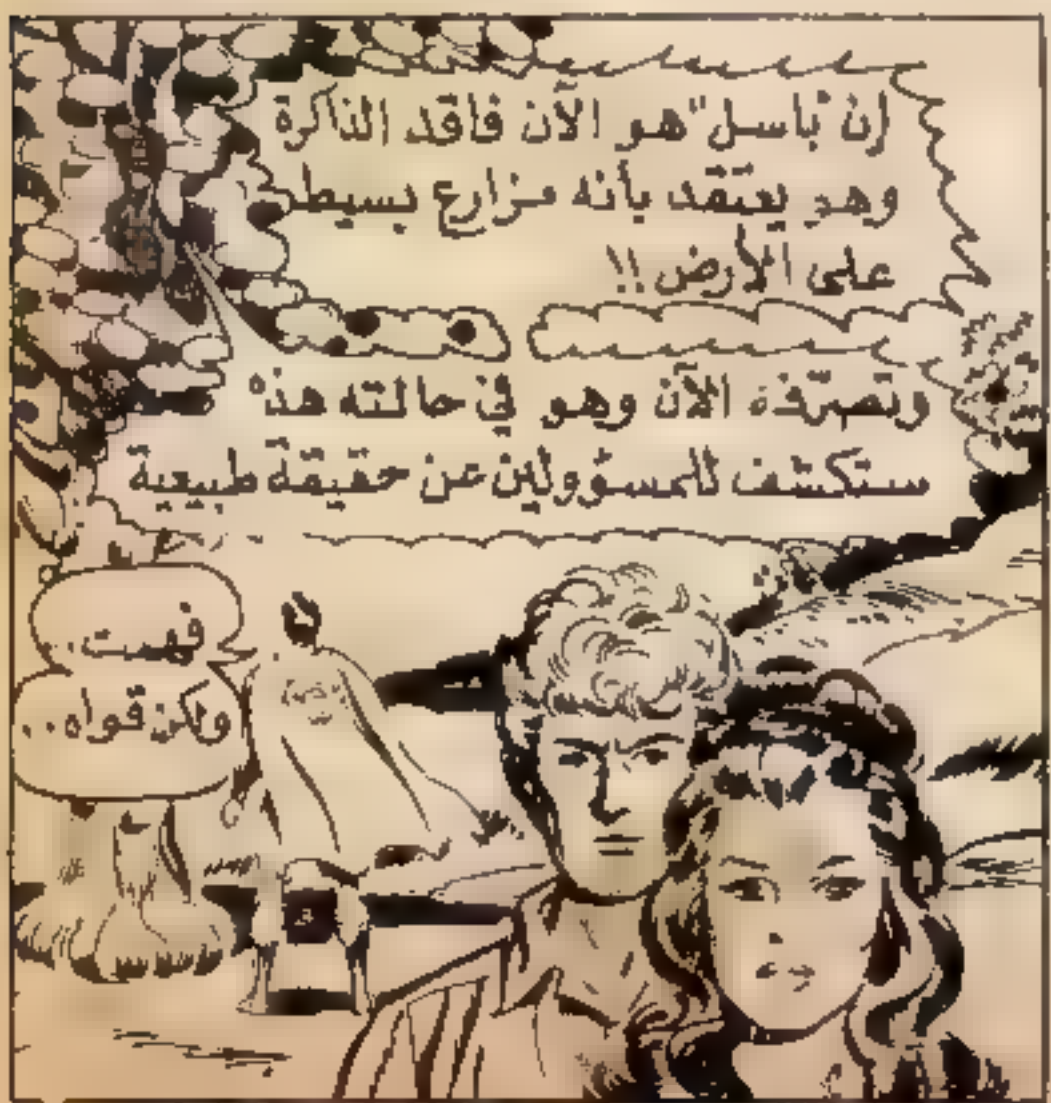 إن "باسل" هو الآن فاقد الذاكرة
وهو يعتقد بأنه مزارع بسيط
على الأرض !!
وتصرّفه الآن وهو في حالته هذه
ستكشف للمسؤولين عن حقيقة طبيعية
فهمت..
ولكن قواه..